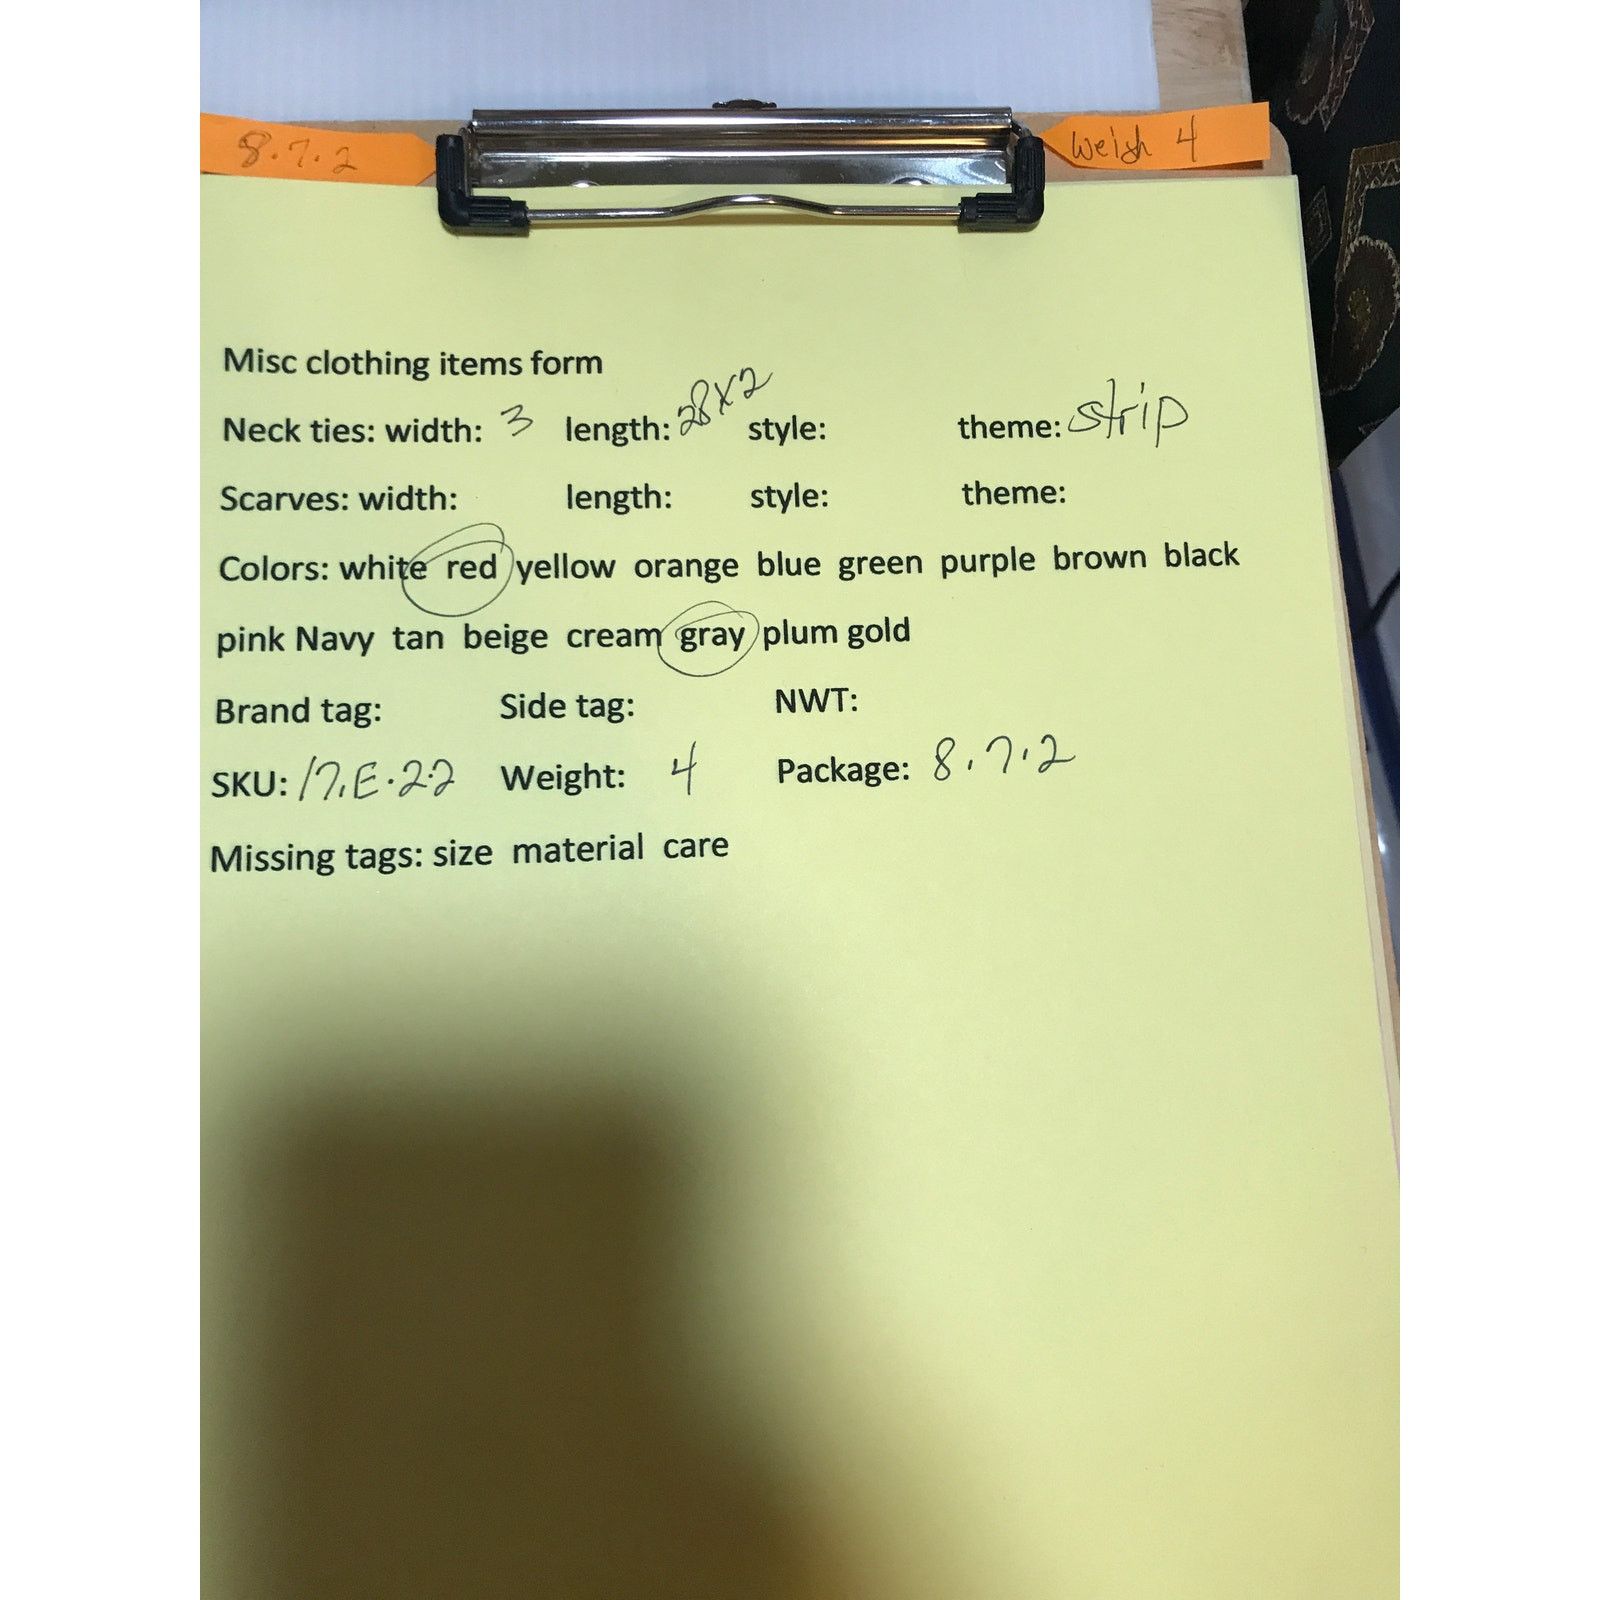 8.7.2 Weigh 4
Misc clothing items form
Neck ties: width: 3 length: 28x2 style: theme: strip
Scarves: width: length: style: theme:
Colors: white red yellow orange blue green purple brown black
pink Navy tan beige cream gray plum gold
Brand tag: Side tag: NWT:
SKU: 17.E.22 Weight: 4 Package: 8.7.2
Missing tags: size material care